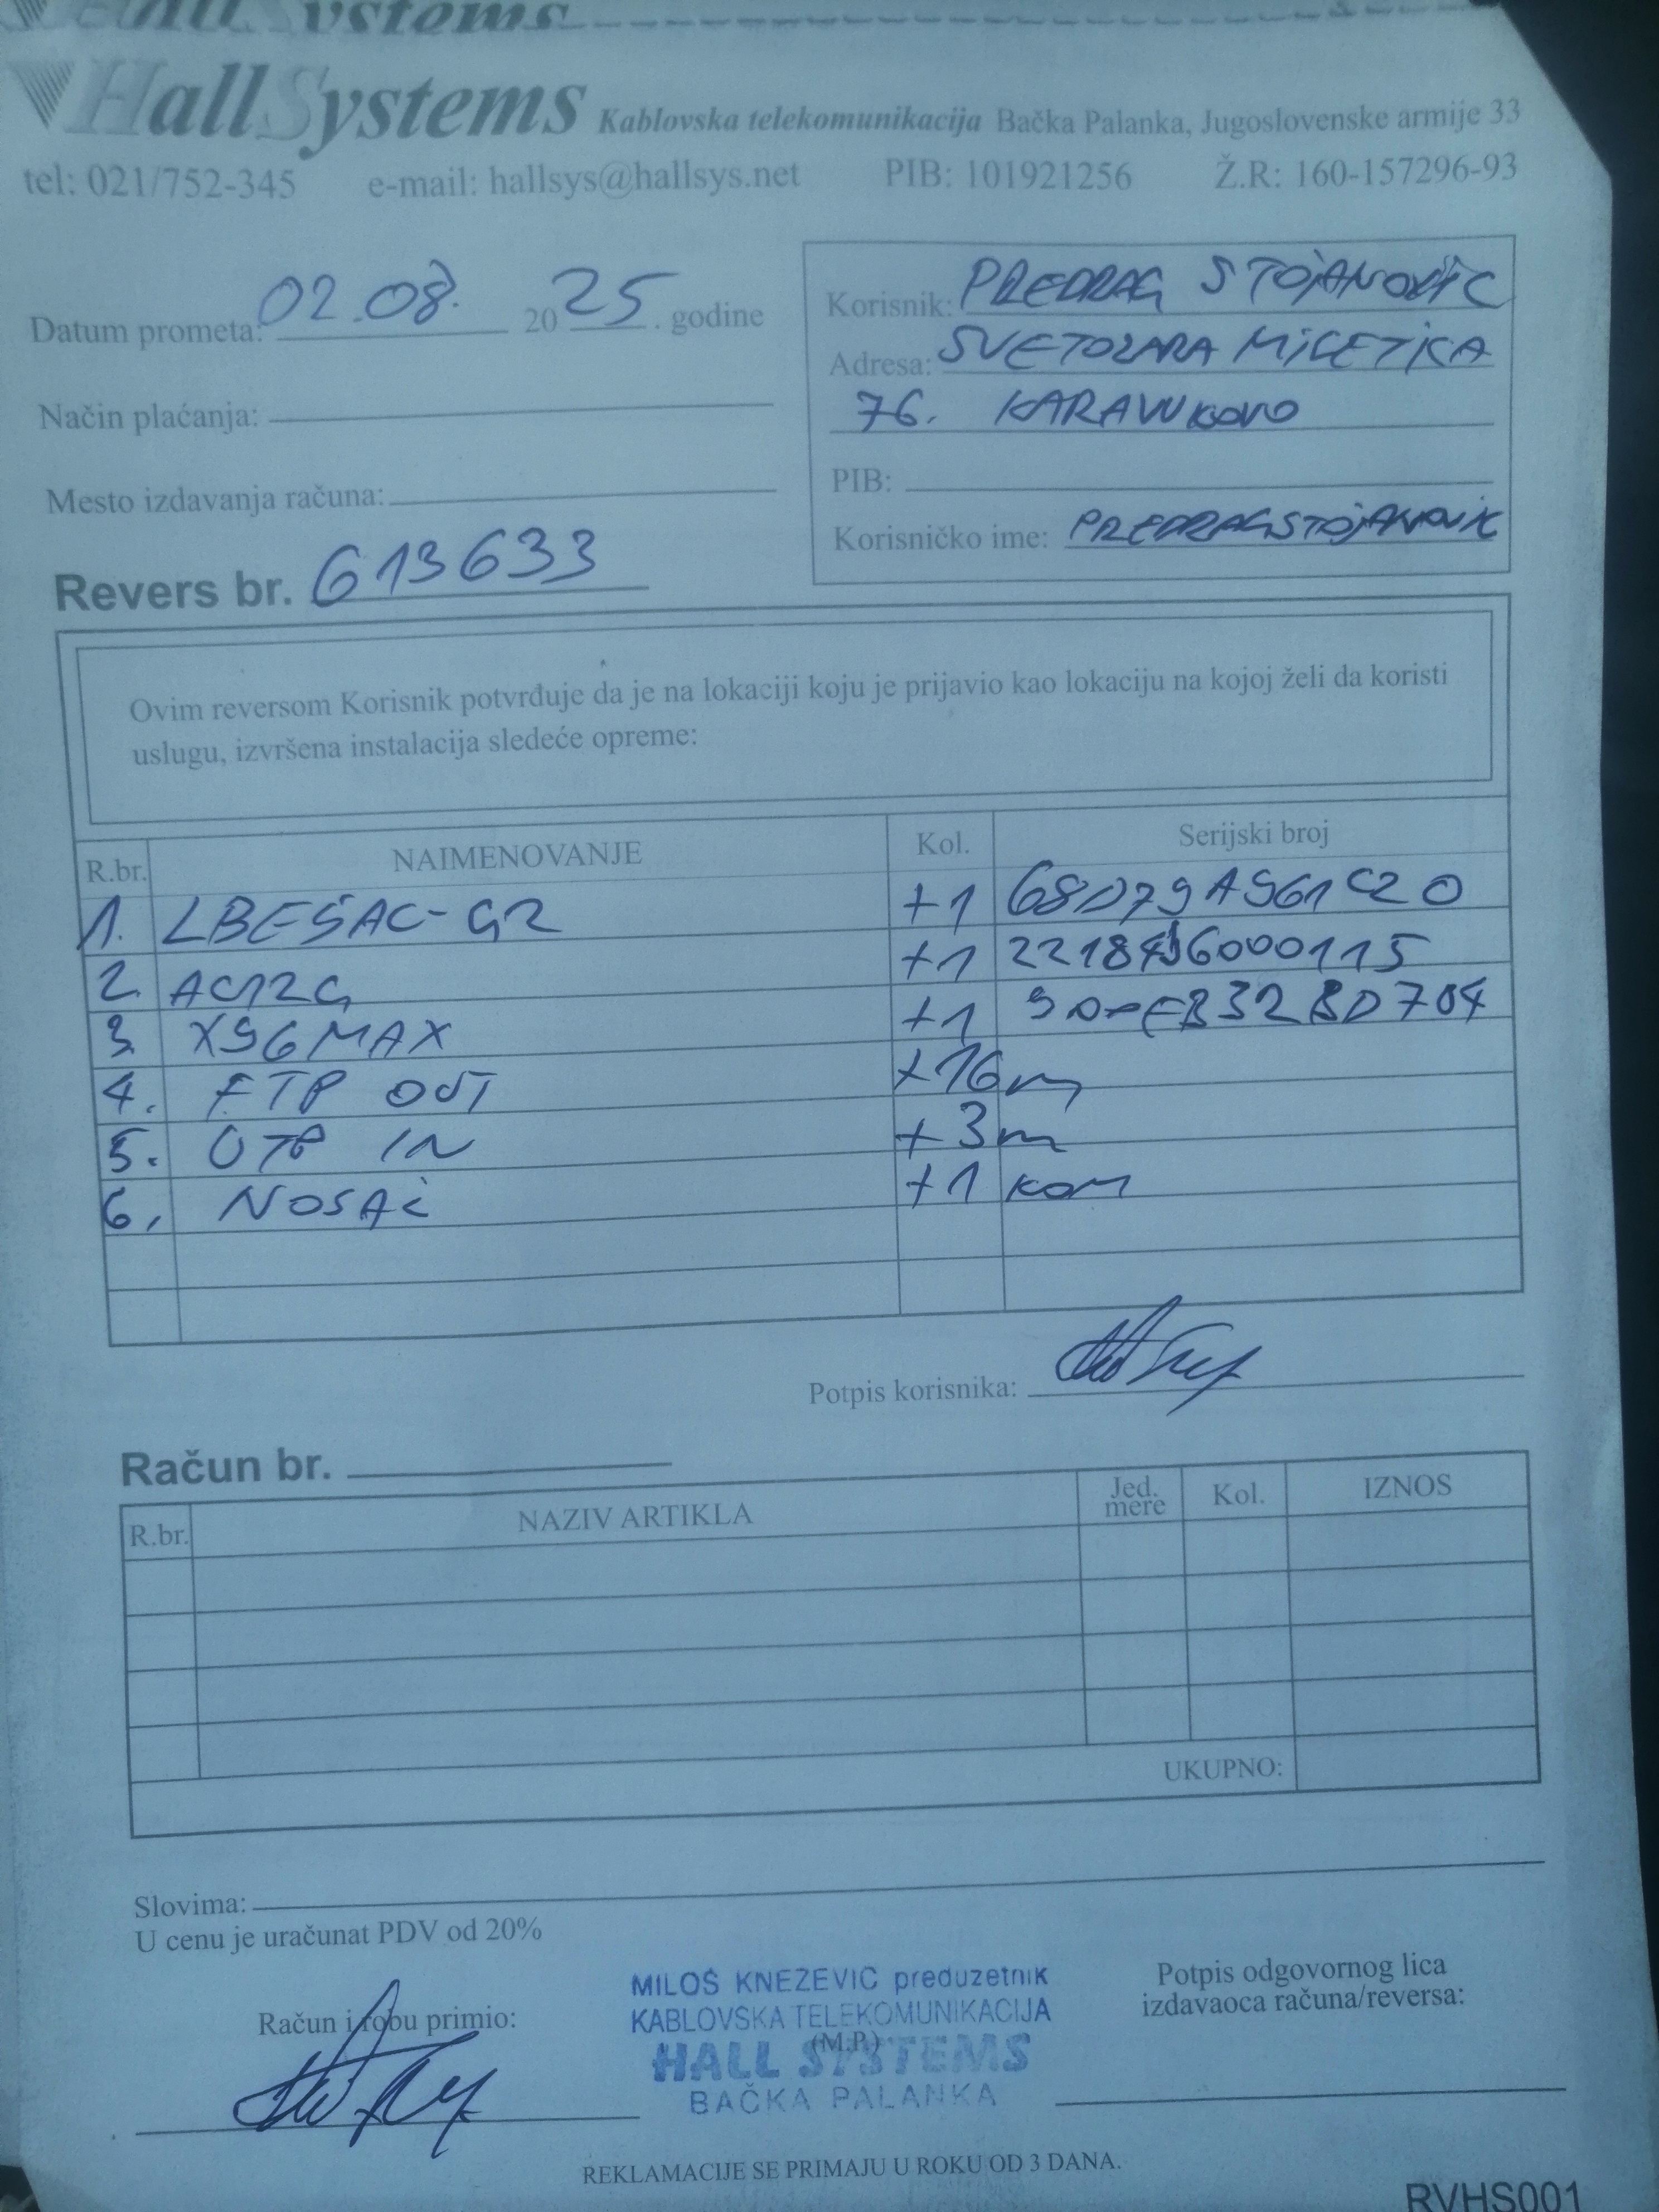 HallSystems Kablovska telekomunikacija Bačka Palanka, Jugoslovenske armije 33
tel: 021/752-345 e-mail: hallsys@hallsys.net PIB: 101921256 Ž.R: 160-157296-93
Datum prometa: 02.08. 2025. godine
Način plaćanja:
Mesto izdavanja računa:
Revers br. 613633
Korisnik: PREDRAG STOJANOVIC
Adresa: SVETOZARA MILETIĆA
76. KARAVUKOVO
PIB:
Korisničko ime: PREDRAGSTOJANOVIC
Ovim reversom Korisnik potvrđuje da je na lokaciji koju je prijavio kao lokaciju na kojoj želi da koristi
uslugu, izvršena instalacija sledeće opreme:
R.br. NAIMENOVANJE Kol. Serijski broj
1. LBE5AC-G2 +1 68D79A961C20
2. AC12G +1
3. X96MAX +1
4. FTP OUT +16m
5. UTP IN +3m
6. NOSAČ +1 KOM
Potpis korisnika:
Račun br.
R.br. NAZIV ARTIKLA Jed. mere Kol. IZNOS
UKUPNO:
Slovima:
U cenu je uračunat PDV od 20%
Račun i robu primio:
MILOŠ KNEZEVIC preduzetnik
KABLOVSKA TELEKOMUNIKACIJA
(M.P.)
HALL SYSTEMS
BAČKA PALANKA
Potpis odgovornog lica
izdavaoca računa/reversa:
REKLAMACIJE SE PRIMAJU U ROKU OD 3 DANA.
RVHS001